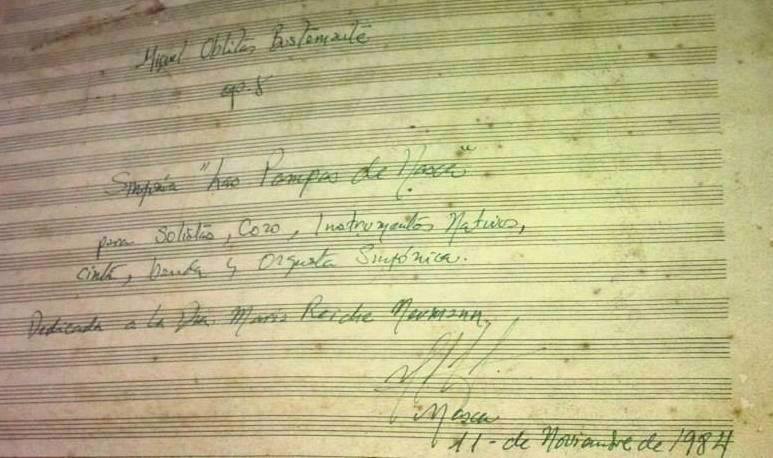 Miguel Oblitas Bustamante
op. 5
Sinfonía "Las Pampas de Nasca"
para Solistas, Coro, Instrumentos Nativos,
cinta, banda y Orquesta Sinfónica.
Dedicada a la Dra. Maria Reiche Newmann,
Nasca
11-de Noviembre de 1984